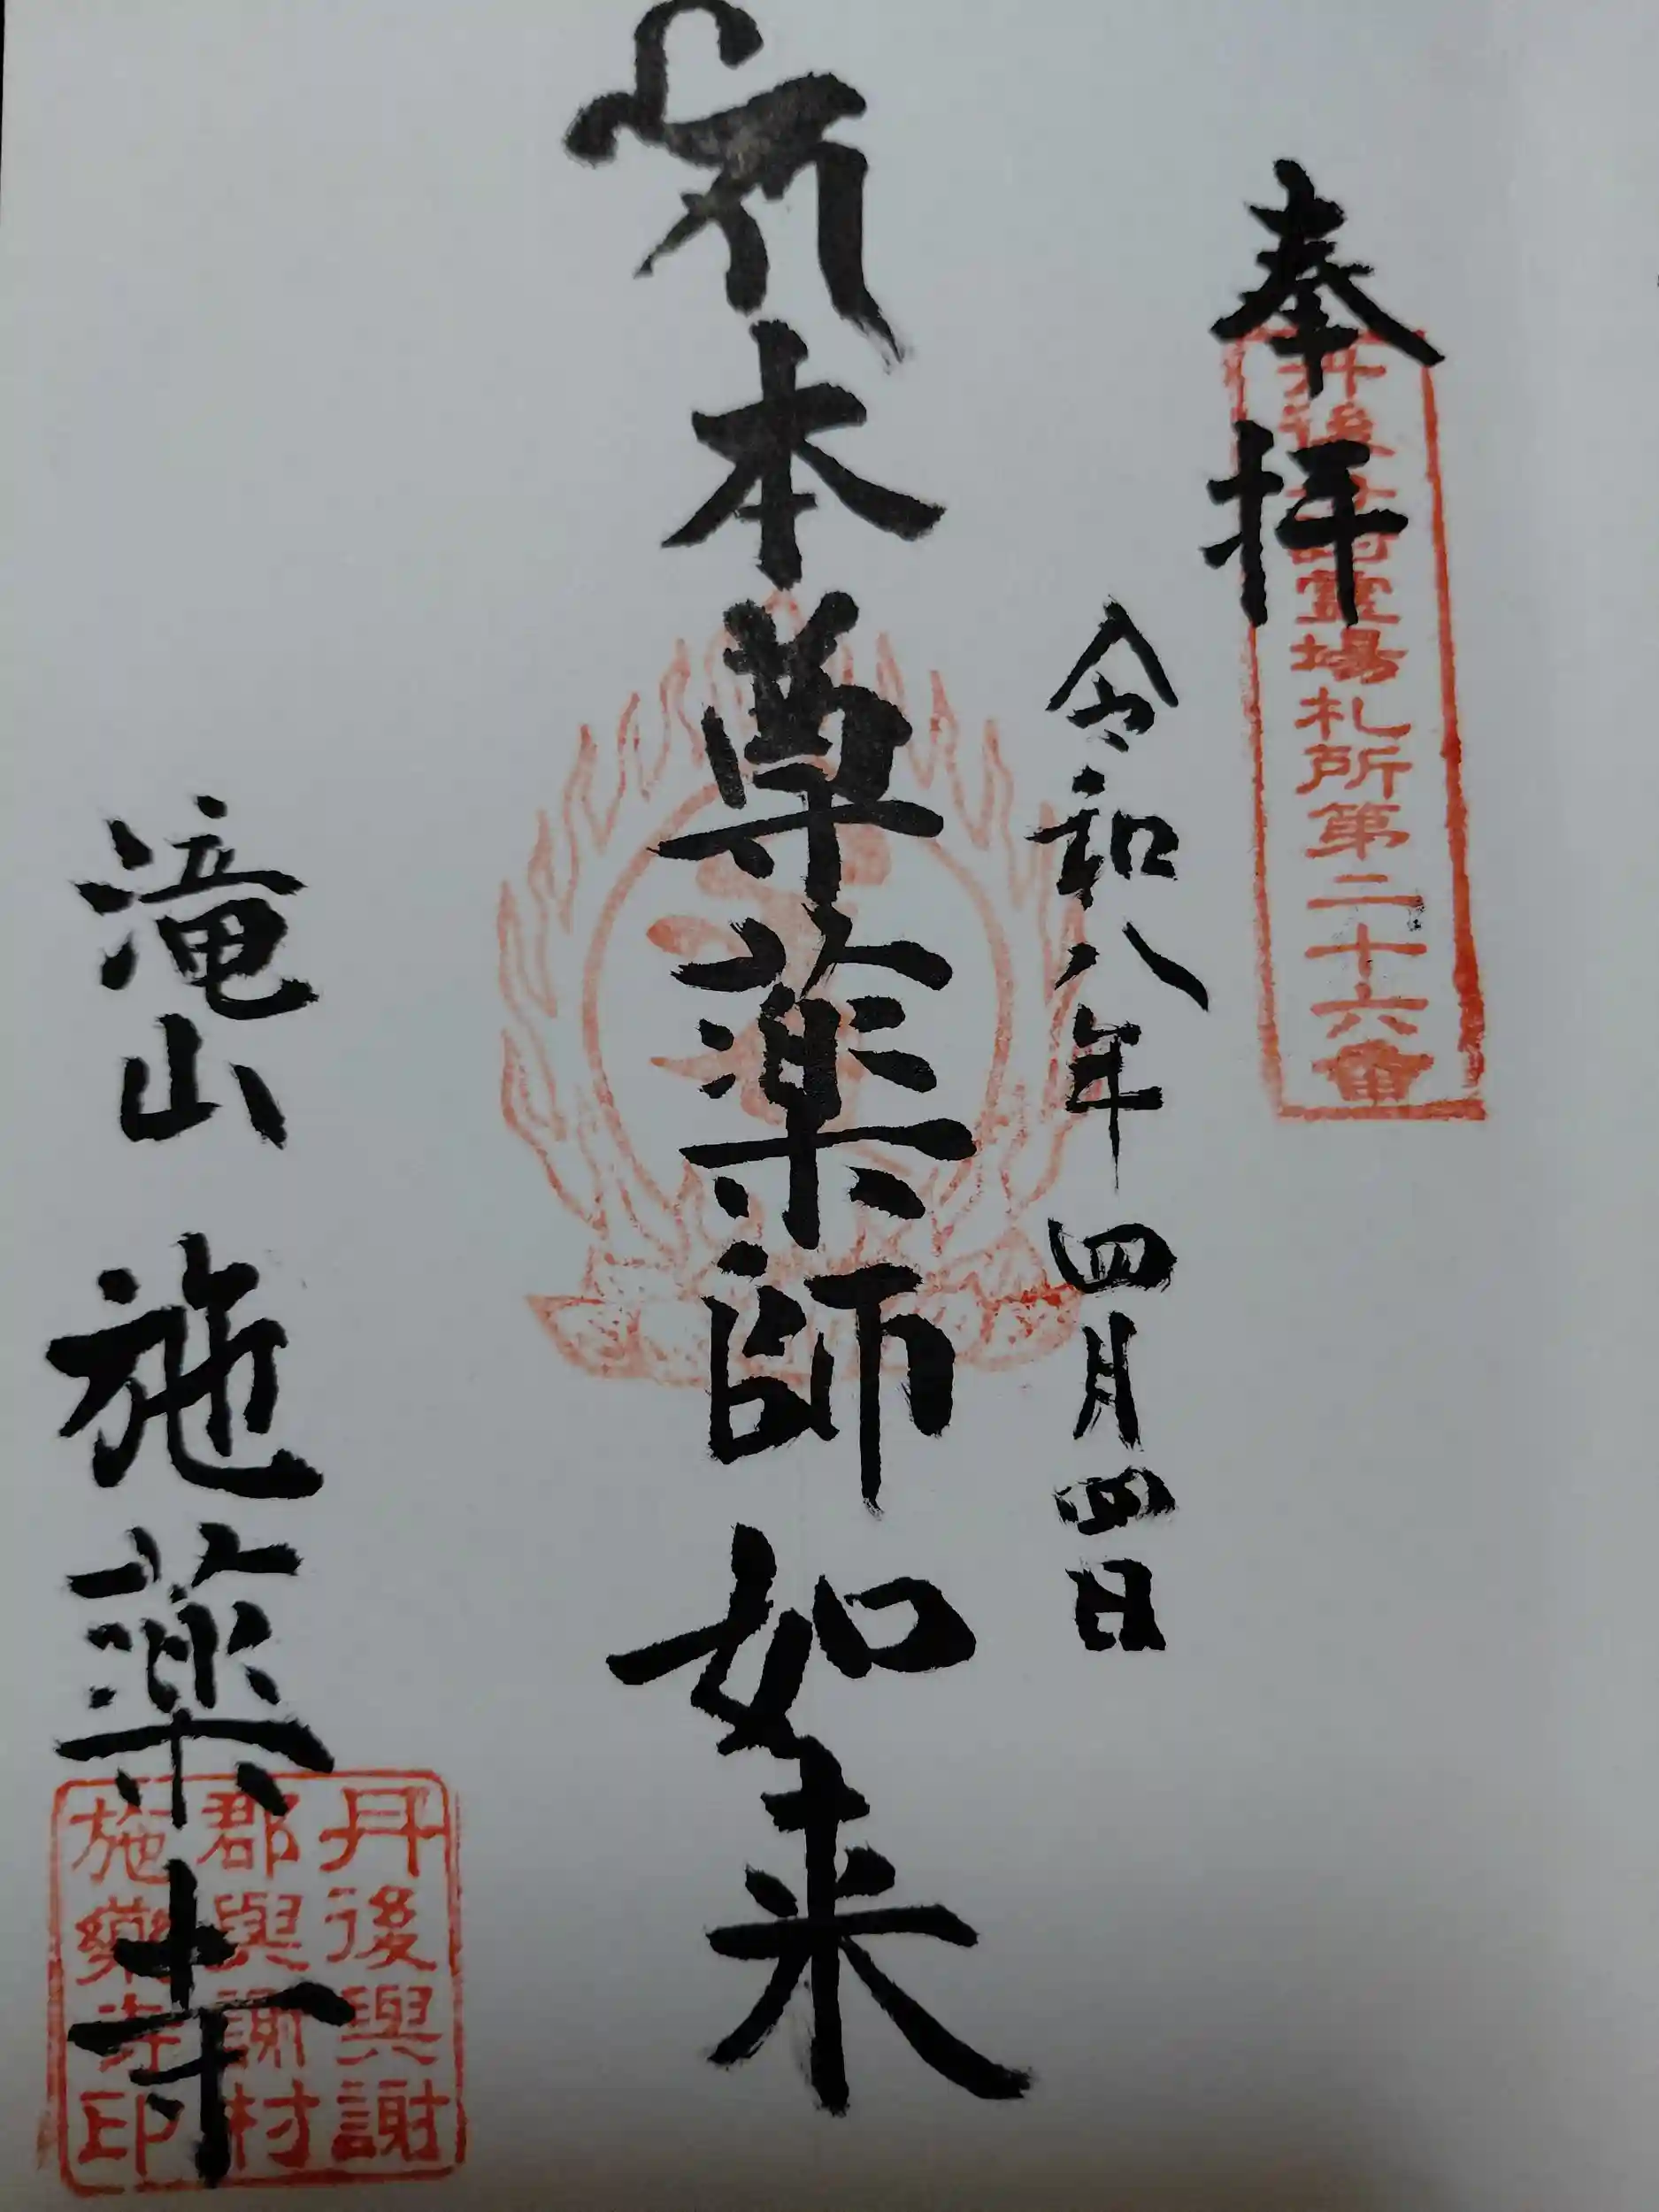 奉拝
丹後
霊場札所第二十六番
令和八年四月四日
本尊薬師如来
滝山 施薬寺
丹後與謝
郡與謝村
施藥寺印